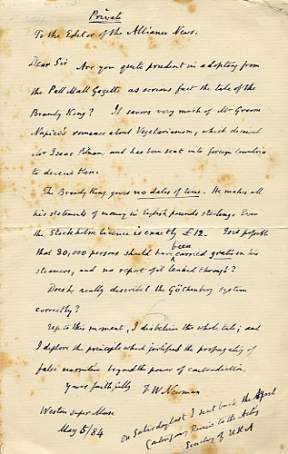 Private
To the Editor of the Alliance News.
Dear Sir Are you quite prudent in adopting from
the Pall Mall Gazette as serious fact the tale of the
Brandy King? It savors very much of Mr Groom
Napier's romance about Vegetarianism, which deceived
Sir Isaac Pitman, and has been sent into foreign countries
to deceive them.
The Brandy King gives no dates of time. He makes all
his statements of money in English pounds sterling. Even
the Stockholm licence is exactly £12. Is it possible
that 30,000 persons should have been carried gratis on his
steamers, and no report of it leaked through?
Does he really describe the Göthenburg system
correctly?
Up to this moment, I disbelieve the whole tale; and
I deplore the principle which justified the propagating of
false narratives beyond the power of contradiction.
Yours faithfully F. W. Newman
Weston super Mare
May 5/84
On Saturday last I sent back the April
Review to the Acting
Secretary of UKA